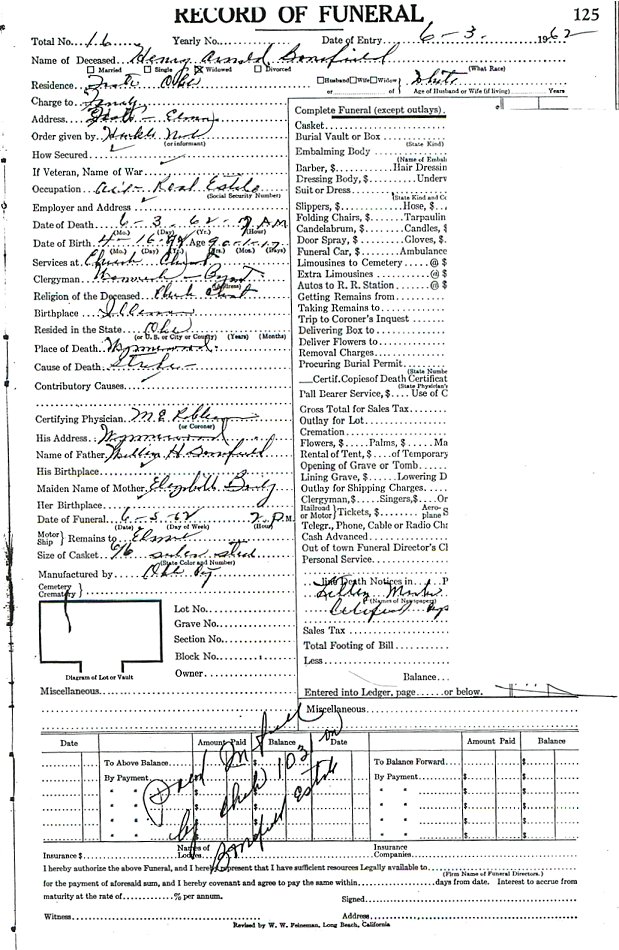 RECORD OF FUNERAL 125
Total No. 16 Yearly No. Date of Entry 6-3- 1962
Name of Deceased Henry Arnold Bonefield
Married Single Widowed Divorced (What Race)
Residence Okla Husband Wife Widow White
or of Age of Husband or Wife (if living) Years
Charge to Family
Address
Order given by
(or informant)
How Secured
If Veteran, Name of War
Occupation Real Estate
(Social Security Number)
Employer and Address
Date of Death 6-3-62- 7 A.M.
(Mo.) (Day) (Yr.) (Hour)
Date of Birth 4-16-92 Age 90-1-17
(Mo.) (Day) (Yr.) (Yrs.) (Mos.) (Days)
Services at Church Christ
Clergyman
(Address)
Religion of the Deceased Church Christ
Birthplace
Resided in the State Okla
(or U. S. or City or County) (Years) (Months)
Place of Death Wynnewood
Cause of Death Stroke
Contributory Causes
Certifying Physician M E Robberson
(or Coroner)
His Address Wynnewood
Name of Father William H Bonefield
His Birthplace
Maiden Name of Mother Elizabeth
Her Birthplace
Date of Funeral 6-5-62 2 P.M.
(Date) (Day of Week) (Hour)
Motor Ship Remains to Elmore
Size of Casket 6/6 silver
(State Color and Number)
Manufactured by Okla
Cemetery
Crematory
Lot No.
Grave No.
Section No.
Block No.
Owner
Diagram of Lot or Vault
Miscellaneous
Complete Funeral (except outlays)
Casket
Burial Vault or Box
(State Kind)
Embalming Body
(Name of Embal
Barber, $ Hair Dressin
Dressing Body, $ Underv
Suit or Dress
(State Kind and Co
Slippers, $ Hose, $
Folding Chairs, $ Tarpaulin
Candelabrum, $ Candles, $
Door Spray, $ Gloves, $
Funeral Car, $ Ambulance
Limousines to Cemetery @ $
Extra Limousines @ $
Autos to R. R. Station @ $
Getting Remains from
Taking Remains to
Trip to Coroner's Inquest
Delivering Box to
Deliver Flowers to
Removal Charges
Procuring Burial Permit
(State Numbe
Certif. Copies of Death Certificat
(State Physician's
Pall Bearer Service, $ Use of C
Gross Total for Sales Tax
Outlay for Lot
Cremation
Flowers, $ Palms, $ Ma
Rental of Tent, $ of Temporary
Opening of Grave or Tomb
Lining Grave, $ Lowering D
Outlay for Shipping Charges
Clergyman, $ Singers, $ Or
Railroad or Motor Tickets, $ Aeroplane $
Telegr., Phone, Cable or Radio Ch
Cash Advanced
Out of town Funeral Director's Cl
Personal Service
line Death Notices in P
(Names of Newspapers)
Sales Tax
Total Footing of Bill
Less
Balance
Entered into Ledger, page or below.
Miscellaneous
Date Amount Paid Balance Date Amount Paid Balance
To Above Balance To Balance Forward
By Payment By Payment
" " " "
" " " "
" " " "
" " " "
Paid in full
by check 1031 on
Bonefield Estate
Insurance $ Names of Lodges Insurance Companies
I hereby authorize the above Funeral, and I hereby represent that I have sufficient resources Legally available to
(Firm Name of Funeral Directors.)
for the payment of aforesaid sum, and I hereby covenant and agree to pay the same within days from date. Interest to accrue from
maturity at the rate of % per annum. Signed
Witness Address
Revised by W. W. Feineman, Long Beach, California